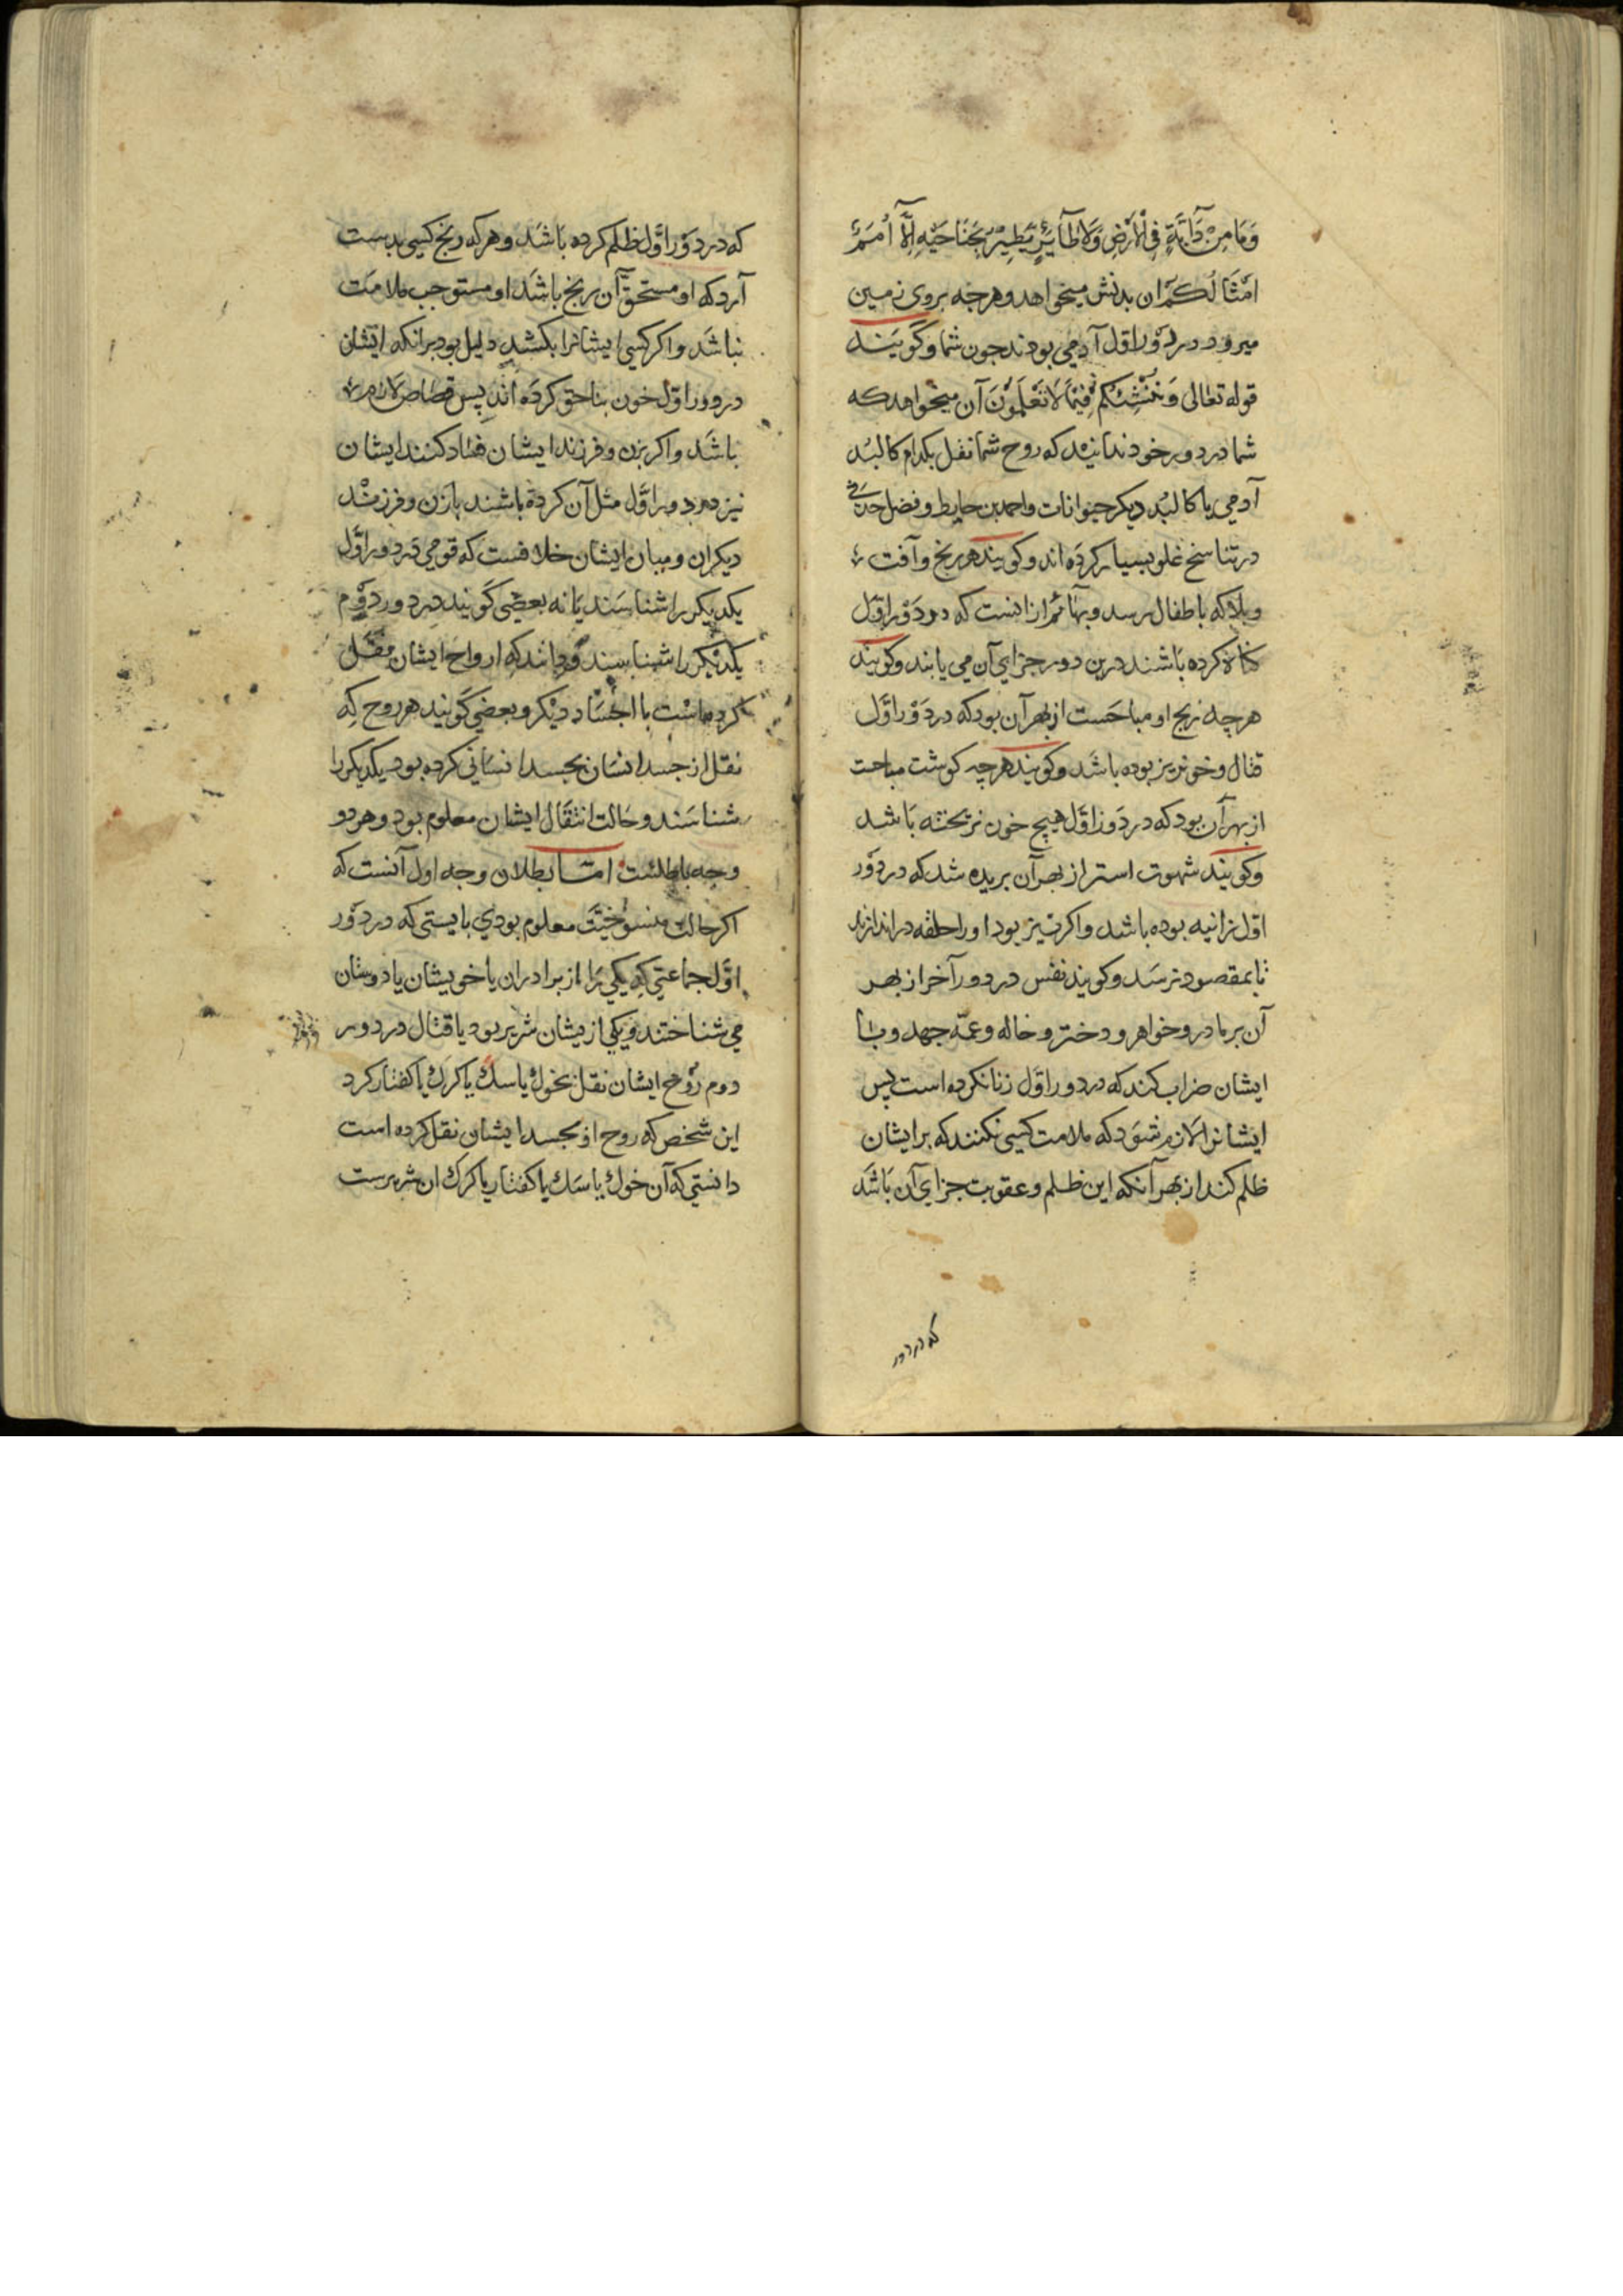 وَمَا مِنْ دَآبَّةٍ فِی الْاَرْضِ وَلَا طَآئِرٍ يَّطِيْرُ بِجَنَاحَيْهِ اِلَّآ اُمَمٌ
اَمْثَالُكُمْ ان بدنش میخواهد وهرجه بروی زمین
میرود در دَوْر اوّل آدمی بودند جون شما وکویند
قوله تعالی وَنُنْشِئَكُمْ فِيْمَا لَا تَعْلَمُوْنَ آن میخواهد که
شما در دور خود ندانید که روح شما نقل بکدام کالبُد
آدمی یا کالبُد دیکر حیوانات واحمد بن حایط وفضل حدثی
در تناسخ غلو بسیار کرده اند وکویند هر رنج وآفت
وبلا که باطفال رسد وبهآئم ازانست که در دَوْر اوّل
کناه کرده باشند درین دور جزای آن می یابند وکویند
هرچه ذبح او مباحست از بهر آن بود که در دَوْر اوّل
قتال وخونریز بوده باشد وکویند هرچه کوشت مباحت
از بهر آن بود که در دَور اوّل هیچ خون نریخته باشد
وکویند شهوت استر از بهر آن بریده شد که در دَوْر
اوّل زانیه بوده باشد واکر تیز بود اورا حلقه دراندازند
تا بمقصود نرسَد وکویند نفس در دور آخر از بهر
آن بر مادر وخواهر ودختر وخاله وعمّه جهد وبا
ایشان ضراب کند که در دور اوّل زنا نکرده است پس
ایشانرا لازم شود که ملامت کسی نکنند که بر ایشان
ظلم کند از بهر آنکه این ظلم وعقوبت جزای آن باشد
که در دور
که در دَوْر اوّل ظلم کرده باشد وهر که رنج کسی بدست
آرد که او مستحقّ آن رنج باشد او مستوجب ملامت
نباشد واکر کسی ایشانرا بکشد دلیل بود برانکه ایشان
در دور اوّل خون بناحق کرده اند پس قصاص لازم
باشد واکر بزن وفرزند ایشان فساد کنند ایشان
نیز در دور اوّل مثل آن کرده باشند بازن وفرزند
دیکران ومیان ایشان خلافست که قومی که در دور اوّل
یکدیکررا شناسند یا نه بعضی کویند در دور دوّم
یکدیکررا شناسند ودانند که ارواح ایشان نقل
کرده است با اجساد دیکر وبعضی کویند هر روح که
نقل از جسد انسان بجسد انسانی کرده بود یکدیکررا
شناسند وحالت انتقال ایشان معلوم بود وهر دو
وجه باطلست امّا بطلان وجه اول آنست که
اکر حالت منسوخیّت معلوم بودی بایستی که در دَوْر
اوّل جماعتی که یکی را از برادران یا خویشان یا دوستان
می شناختند ویکی ازیشان شریر بود یا قتال در دور
دوم روح ایشان نقل بخوك یا سك یا کرك یا کفتار کرد
این شخص که روح او بجسد ایشان نقل کرده است
دانستی که آن خوك یا سك یا کفتار یا کرك ان شریرست